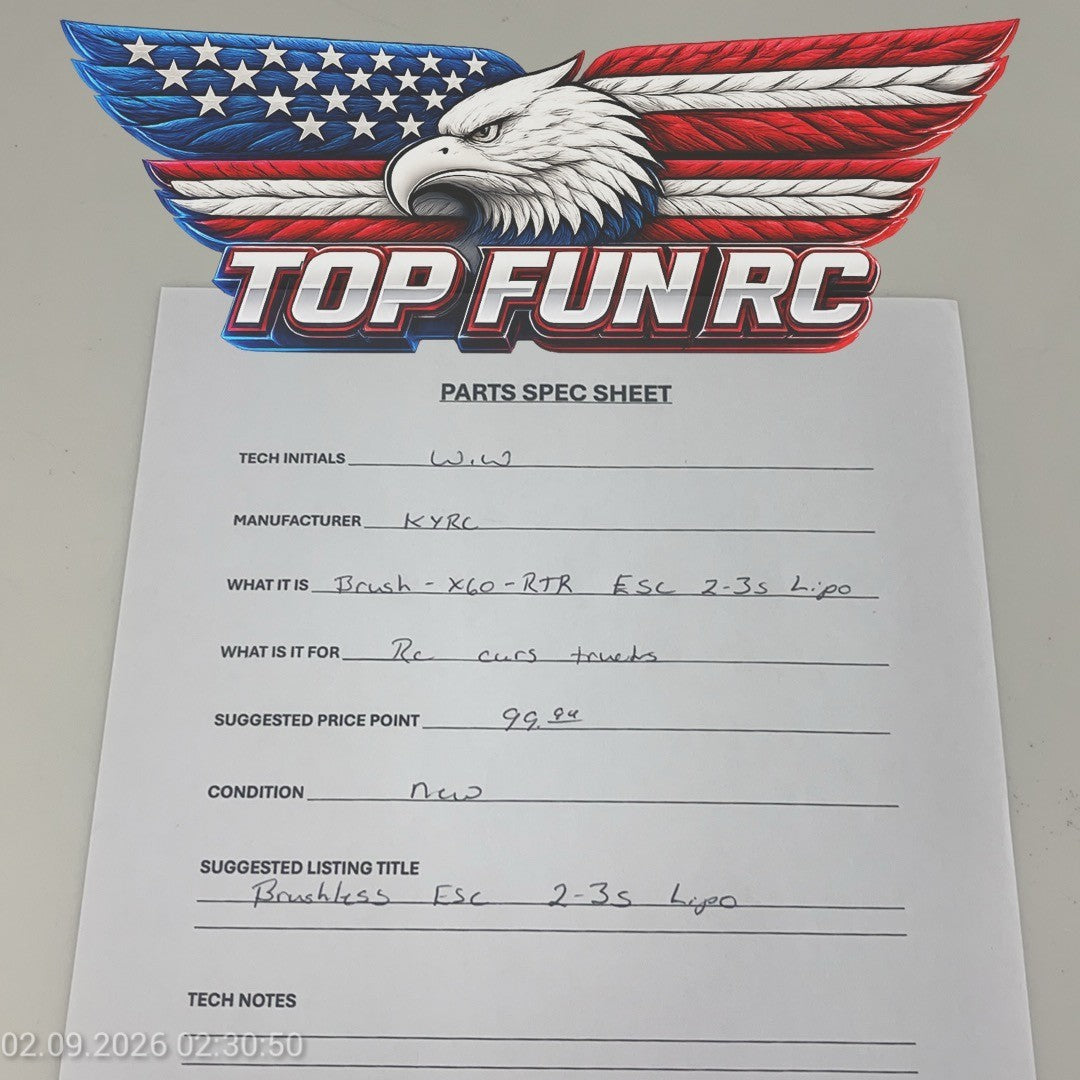 TOP FUN RC
PARTS SPEC SHEET
TECH INITIALS W.W
MANUFACTURER KYRC
WHAT IT IS Brush - X60 - RTR ESC 2-3s Lipo
WHAT IS IT FOR Rc cars trucks
SUGGESTED PRICE POINT 99.
CONDITION new
SUGGESTED LISTING TITLE
Brushless ESC 2-3s Lipo
TECH NOTES
02.09.2026 02:30:50